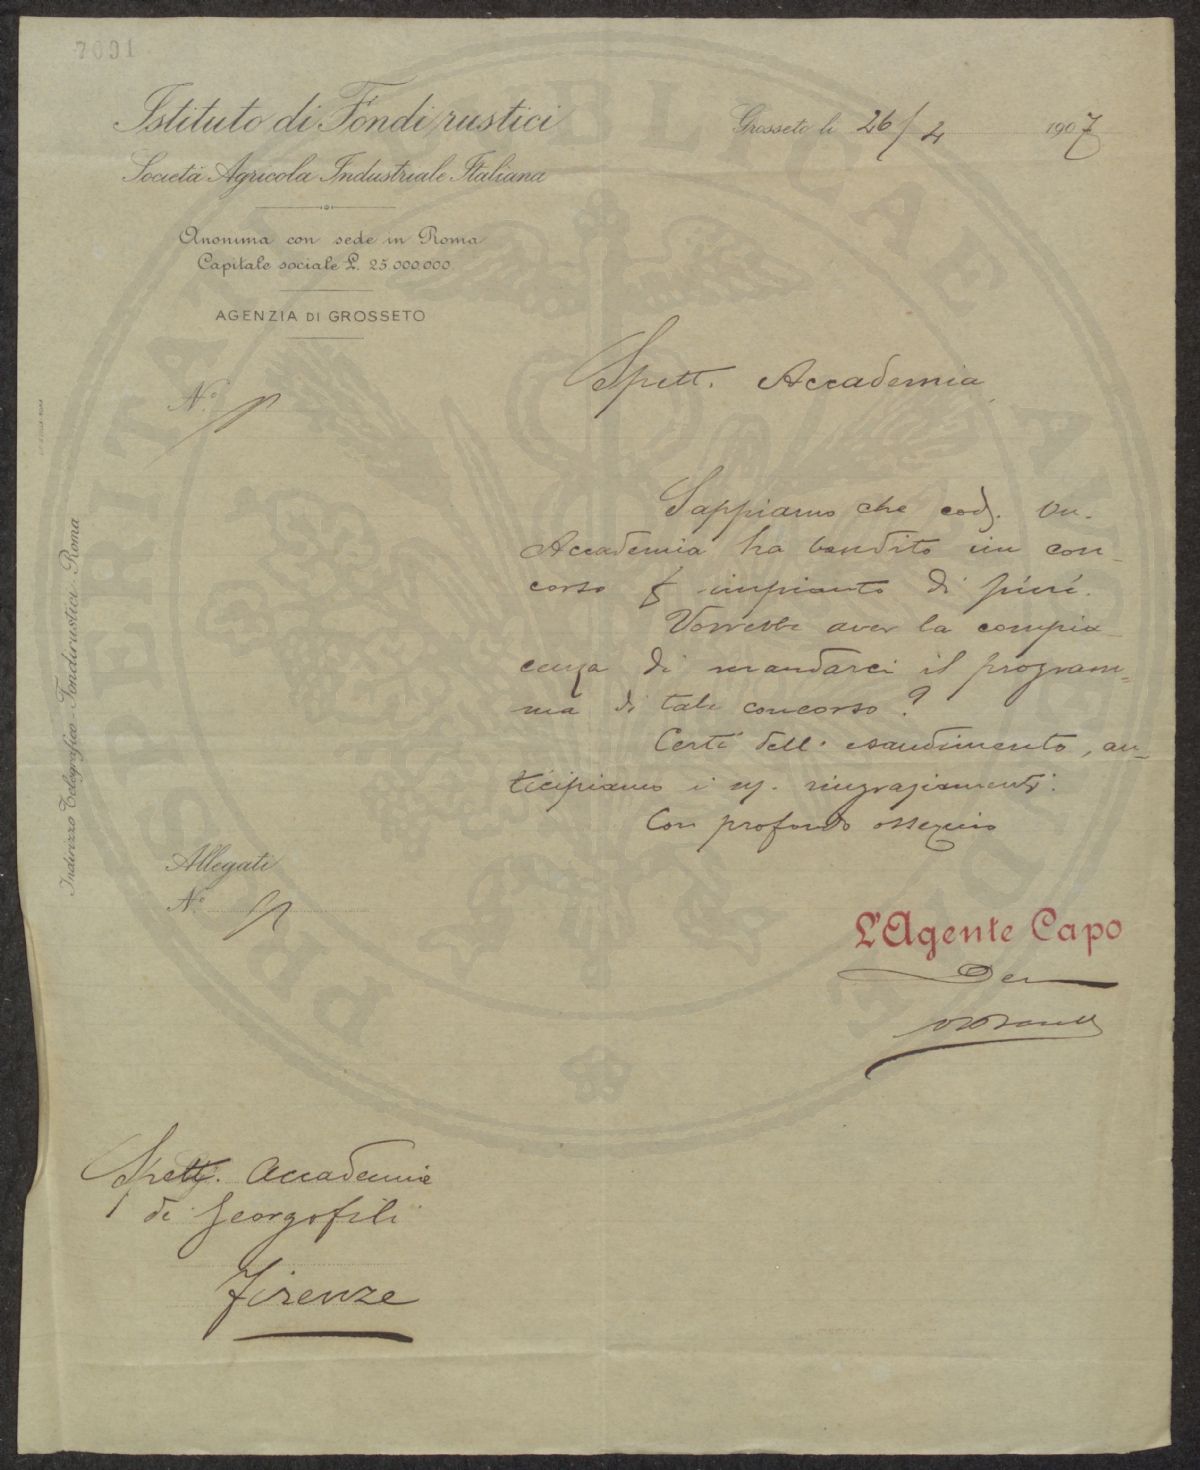 7091
Istituto di Fondi rustici
Società Agricola Industriale Italiana
Anonima con sede in Roma
Capitale sociale £. 25.000.000
AGENZIA DI GROSSETO
Grosseto li 26/2 1907
N.º
Spett. Accademia
Sappiamo che cod. On.
Accademia ha bandito un con-
corso impianto di pini.
Vorrebbe aver la compia
cenza di mandarci il program=
ma di tale concorso?
Certi dell' esaudimento, an-
ticipiamo i ringraziamenti.
Con profondo ossequio
Indirizzo Telegrafico - Fondirustici - Roma
Allegati
N.º
L'Agente Capo
Spett. Accademia
di Georgofili
Firenze
PROSPERITATI PUBLICAE AUGENDAE